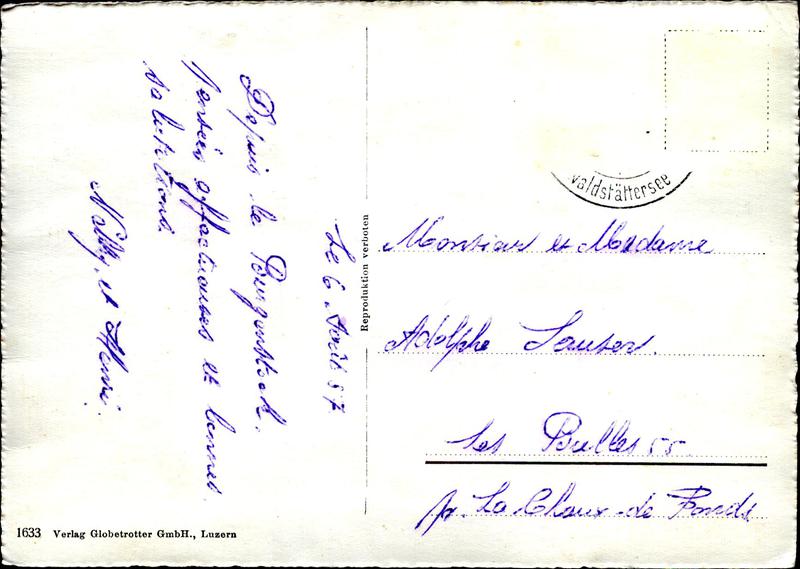 Le 6 Août 57
Depuis le Bürgenstock.
Pensées affectueuses et bonnes
salutations.
et Henri.
Reproduktion verboten
waldstättersee
Monsieur et Madame
Adolphe Sauser.
Les Bulles 55
pr. La Chaux-de Fonds
1633 Verlag Globetrotter GmbH., Luzern